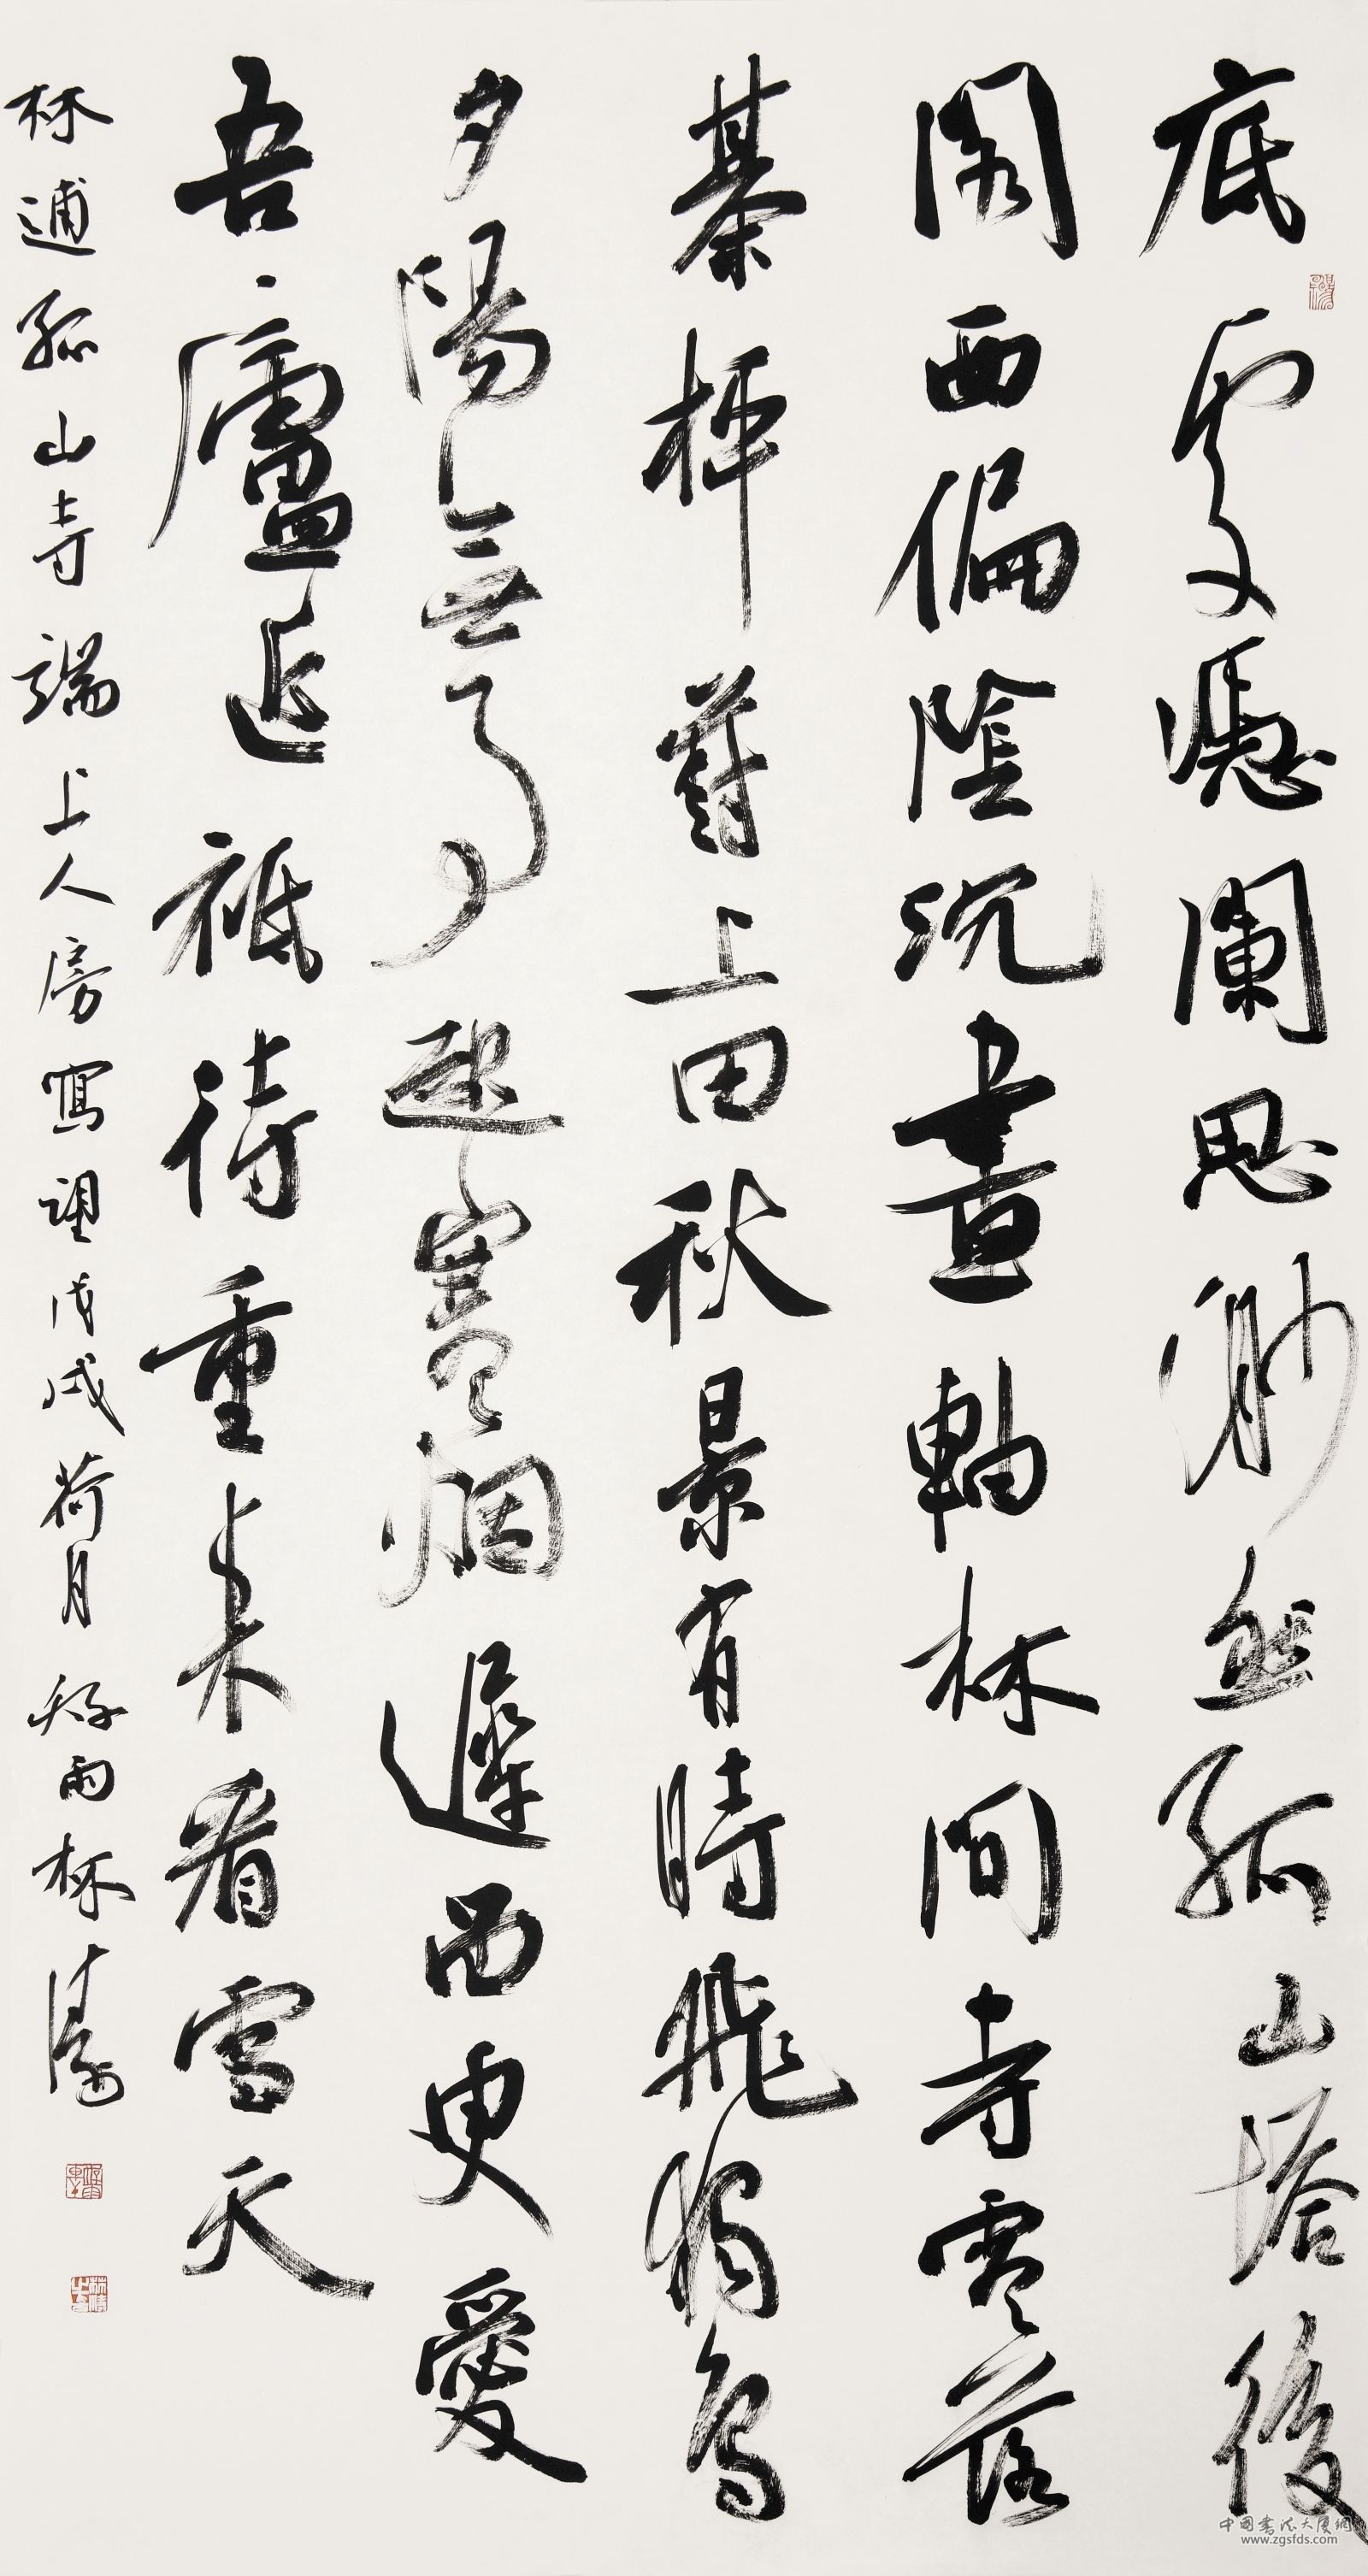 底處憑闌思眇然孤山塔後
閣西偏陰沉畫軸林間寺零落
棊枰葑上田秋景有時飛獨鳥
夕陽無事起寒烟遲留更愛
吾廬近祗待重來看雪天
林逋孤山寺端上人房寫望戊戌荷月 雨林濤
中国书法大厦網
www.zgsfds.com